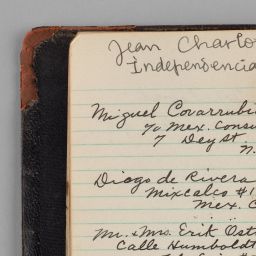 Jean Charlo
Independencia
Miguel Covarrubi
% Mex. Consu
7 Dey St.
N.
Diego de Rivera
Mixcalco #1
Mex. C
Mr. & Mrs. Erik Ost
Calle Humboldt